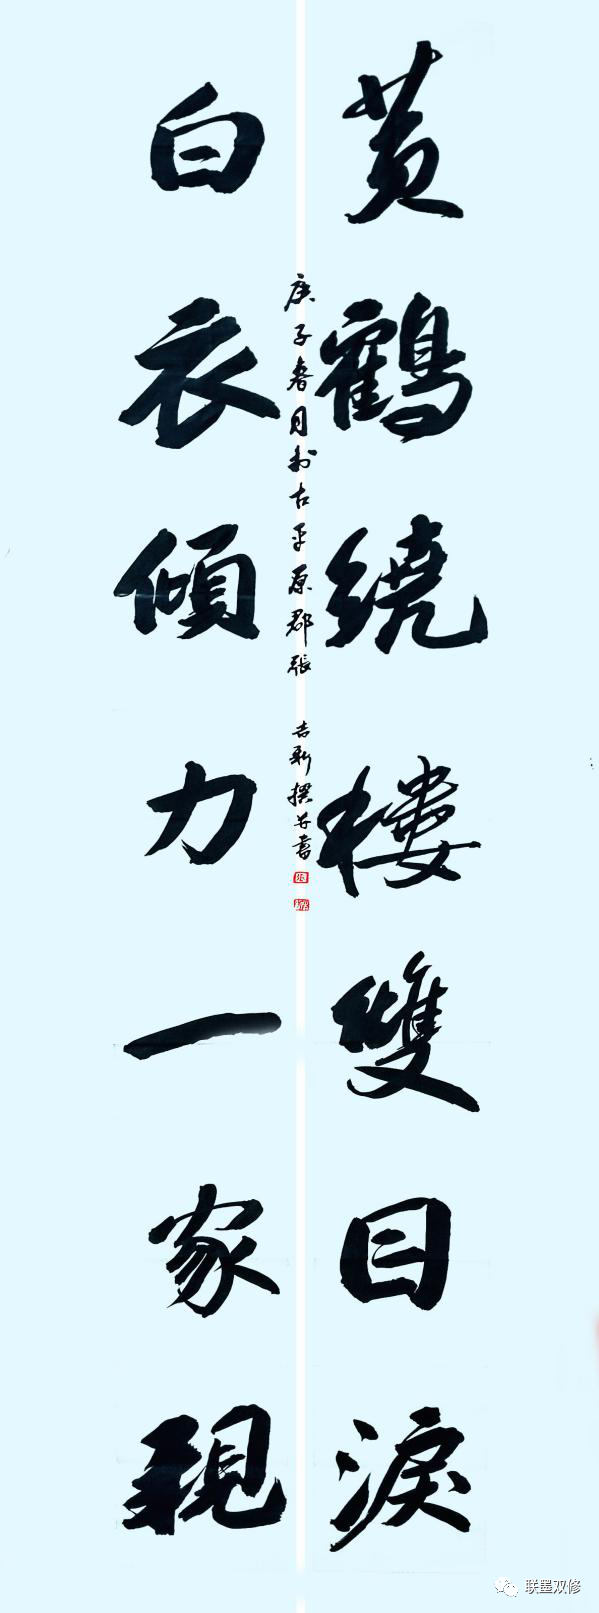 黃鶴繞樓雙目淚
白衣傾力一家親
庚子春月於古平原郡張
吉新撰并書
联墨双修